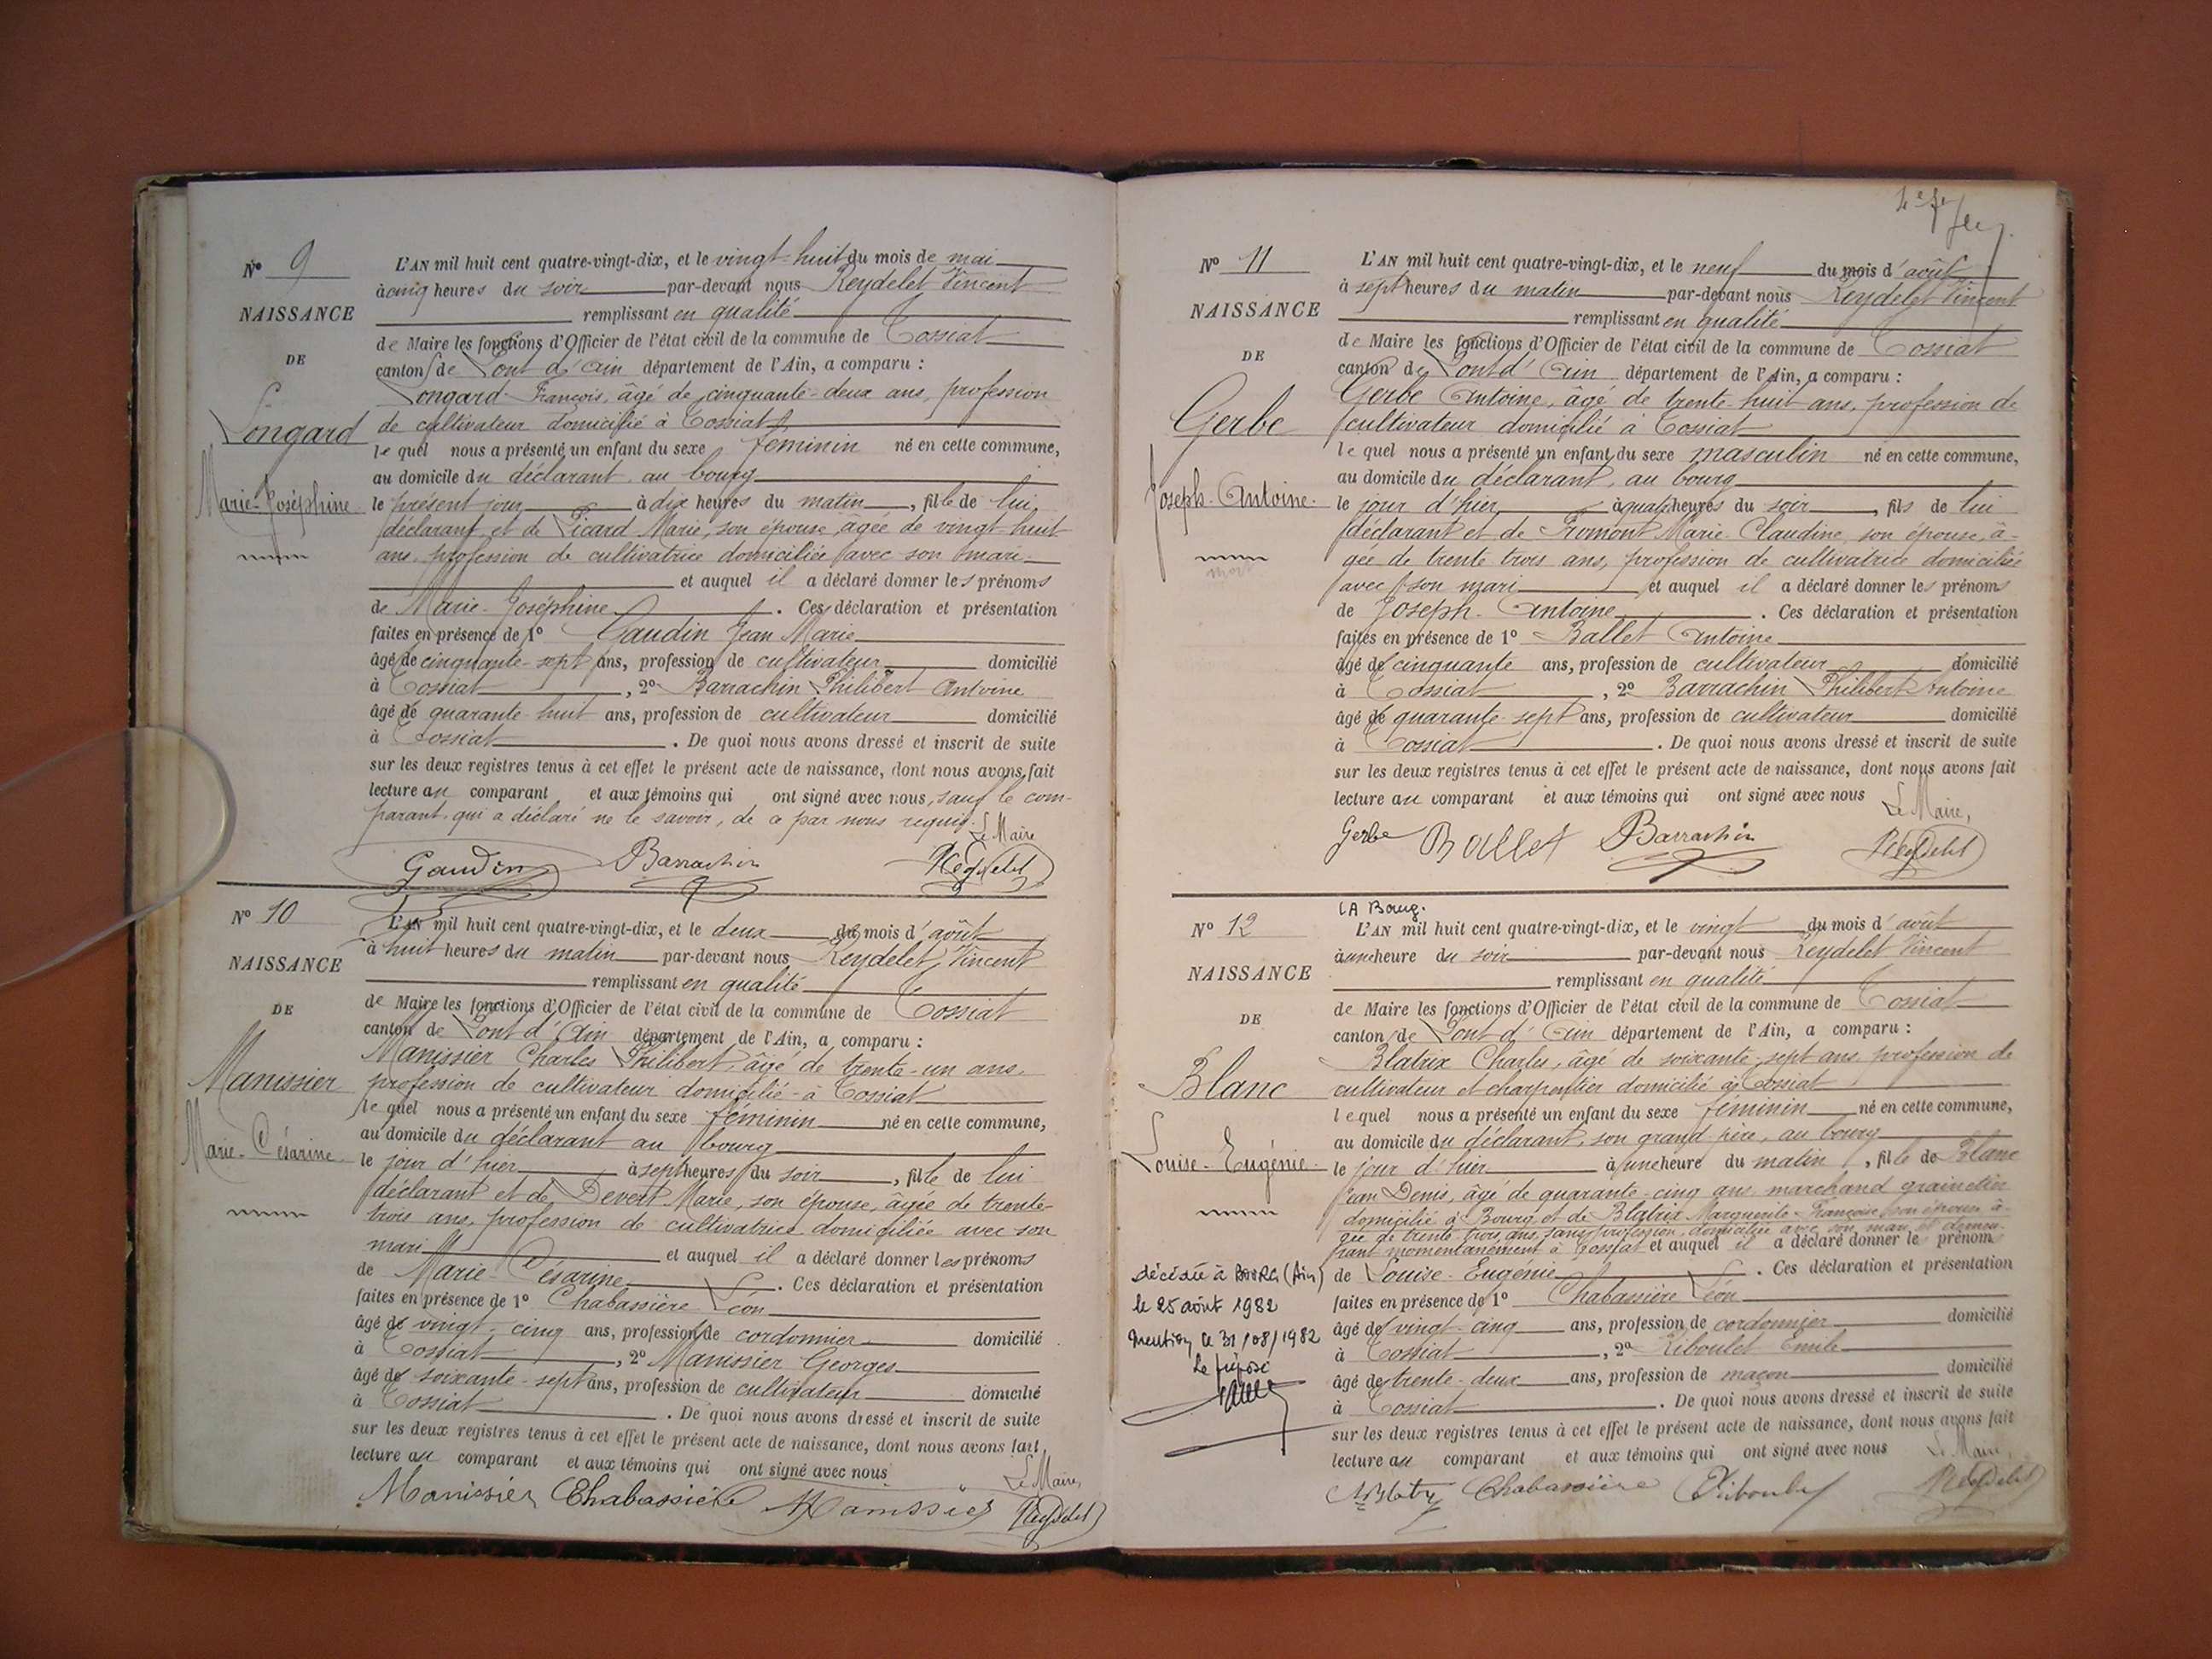 Nº 9
NAISSANCE
DE
Longard
Marie-Joséphine
L'AN mil huit cent quatre-vingt-dix, et le vingt-huit du mois de mai
à cinq heures du soir par-devant nous Reydelet Vincent
remplissant en qualité
de Maire les fonctions d'Officier de l'état civil de la commune de Tossiat
canton de Pont d'Ain département de l'Ain, a comparu :
Longard François, âgé de cinquante-deux ans, profession
de cultivateur domicilié à Tossiat
lequel nous a présenté un enfant du sexe féminin né en cette commune,
au domicile du déclarant au bourg
le présent jour à dix heures du matin, fille de lui
déclarant et de Picard Marie, son épouse, âgée de vingt-huit
ans, profession de cultivatrice domiciliée avec son mari
et auquel il a déclaré donner les prénoms
de Marie-Joséphine. Ces déclaration et présentation
faites en présence de 1º Gaudin Jean Marie
âgé de cinquante-sept ans, profession de cultivateur domicilié
à Tossiat, 2º Barrachin Philibert Antoine
âgé de quarante-huit ans, profession de cultivateur domicilié
à Tossiat. De quoi nous avons dressé et inscrit de suite
sur les deux registres tenus à cet effet le présent acte de naissance, dont nous avons fait
lecture au comparant et aux témoins qui ont signé avec nous, sauf le com-
parant qui a déclaré ne le savoir, de ce par nous requis.
Le Maire
Gaudin Barrachin Reydelet
Nº 10
NAISSANCE
DE
Manissier
Marie-Césarine
L'AN mil huit cent quatre-vingt-dix, et le deux du mois d'août
à huit heures du matin par-devant nous Reydelet Vincent
remplissant en qualité
de Maire les fonctions d'Officier de l'état civil de la commune de Tossiat
canton de Pont d'Ain département de l'Ain, a comparu :
Manissier Charles Philibert, âgé de trente-un ans,
profession de cultivateur domicilié à Tossiat
lequel nous a présenté un enfant du sexe féminin né en cette commune,
au domicile du déclarant au bourg
le jour d'hier à sept heures du soir, fille de lui
déclarant et de Devert Marie, son épouse, âgée de trente-
trois ans, profession de cultivatrice domiciliée avec son
mari et auquel il a déclaré donner les prénoms
de Marie-Césarine. Ces déclaration et présentation
faites en présence de 1º Chabassière Léon
âgé de vingt-cinq ans, profession de cordonnier domicilié
à Tossiat, 2º Manissier Georges
âgé de soixante-sept ans, profession de cultivateur domicilié
à Tossiat. De quoi nous avons dressé et inscrit de suite
sur les deux registres tenus à cet effet le présent acte de naissance, dont nous avons fait
lecture au comparant et aux témoins qui ont signé avec nous
Le Maire,
Manissier Chabassière Manissier Reydelet
Nº 11
NAISSANCE
DE
Gerbe
Joseph-Antoine
mort
L'AN mil huit cent quatre-vingt-dix, et le neuf du mois d'août
à sept heures du matin par-devant nous Reydelet Vincent
remplissant en qualité
de Maire les fonctions d'Officier de l'état civil de la commune de Tossiat
canton de Pont d'Ain département de l'Ain, a comparu :
Gerbe Antoine, âgé de trente-huit ans, profession de
cultivateur domicilié à Tossiat
lequel nous a présenté un enfant du sexe masculin né en cette commune,
au domicile du déclarant, au bourg
le jour d'hier à quatre heures du soir, fils de lui
déclarant et de Fromont Marie-Claudine, son épouse, â-
gée de trente trois ans, profession de cultivatrice domiciliée
avec son mari et auquel il a déclaré donner les prénoms
de Joseph-Antoine. Ces déclaration et présentation
faites en présence de 1º Ballet Antoine
âgé de cinquante ans, profession de cultivateur domicilié
à Tossiat, 2º Barrachin Philibert Antoine
âgé de quarante-sept ans, profession de cultivateur domicilié
à Tossiat. De quoi nous avons dressé et inscrit de suite
sur les deux registres tenus à cet effet le présent acte de naissance, dont nous avons fait
lecture au comparant et aux témoins qui ont signé avec nous
Le Maire,
Gerbe Ballet Barrachin Reydelet
Nº 12
NAISSANCE
DE
Blanc
Louise-Eugénie
décédée à BOURG (Ain)
le 25 août 1982
Mention le 31/08/1982
Le préposé
(A Bourg.
L'AN mil huit cent quatre-vingt-dix, et le vingt du mois d'août
à une heure du soir par-devant nous Reydelet Vincent
remplissant en qualité
de Maire les fonctions d'Officier de l'état civil de la commune de Tossiat
canton de Pont d'Ain département de l'Ain, a comparu :
Blatrix Charles, âgé de soixante-sept ans, profession de
cultivateur et charpentier domicilié à Tossiat
lequel nous a présenté un enfant du sexe féminin né en cette commune,
au domicile du déclarant, son grand père, au bourg
le jour d'hier à une heure du matin, fille de Blanc
Jean Denis, âgé de quarante-cinq ans, marchand grainetier
domicilié à Bourg et de Blatrix Marguerite-Françoise, son épouse, â-
gée de trente-trois ans, sans profession, domiciliée avec son mari et demeu-
rant momentanément à Tossiat et auquel il a déclaré donner le prénom
de Louise-Eugénie. Ces déclaration et présentation
faites en présence de 1º Chabassière Léon
âgé de vingt-cinq ans, profession de cordonnier domicilié
à Tossiat, 2º Riboulet Emile
âgé de trente-deux ans, profession de maçon domicilié
à Tossiat. De quoi nous avons dressé et inscrit de suite
sur les deux registres tenus à cet effet le présent acte de naissance, dont nous avons fait
lecture au comparant et aux témoins qui ont signé avec nous
Le Maire,
Blatrix Chabassière Riboulet Reydelet